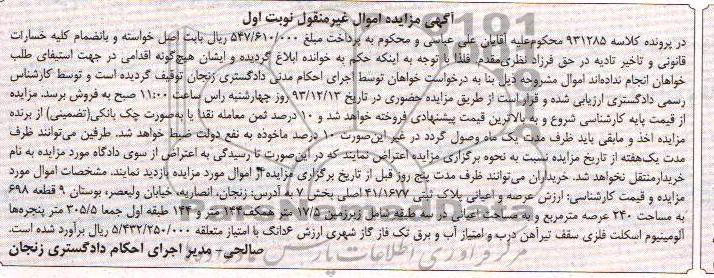 آگهی مزایده اموال غیرمنقول نوبت اول
در پرونده کلاسه ۹۳۱۲۸۵ محکوم‌علیه آقایان علی عباسی و محکوم به پرداخت مبلغ ۵۴۷/۶۱۰/۰۰۰ ریال بابت اصل خواسته و بانضمام کلیه خسارات
قانونی و تاخیر تادیه در حق فرزاد نظری‌مقدم. فلذا با توجه به اینکه حکم به خوانده ابلاغ گردیده و ایشان هیچ‌گونه اقدامی در جهت استیفای طلب
خواهان انجام نداده‌اند اموال مشروحه ذیل بنا به درخواست خواهان توسط اجرای احکام مدنی دادگستری زنجان توقیف گردیده است و توسط کارشناس
رسمی دادگستری ارزیابی شده و قرار است از طریق مزایده حضوری در تاریخ ۹۳/۱۲/۱۳ روز چهارشنبه راس ساعت ۱۱:۰۰ صبح به فروش برسد. مزایده
از قیمت پایه کارشناسی شروع و به بالاترین قیمت پیشنهادی فروخته خواهد شد و ۱۰ درصد ثمن معامله نقدا یا به‌صورت چک بانکی(تضمینی) از برنده
مزایده اخذ و مابقی باید ظرف مدت یک ماه وصول گردد در غیر این‌صورت ۱۰ درصد ماخوذه به نفع دولت ضبط خواهد شد. طرفین می‌توانند ظرف
مدت یک‌هفته از تاریخ مزایده نسبت به نحوه برگزاری مزایده اعتراض نمایند که در این‌صورت تا رسیدگی به اعتراض از سوی دادگاه مورد مزایده به نام
خریدار منتقل نخواهد شد. خریداران می‌توانند ظرف مدت پنج روز قبل از تاریخ برگزاری مزایده از اموال مورد مزایده بازدید نمایند. مشخصات اموال مورد
مزایده و قیمت کارشناسی: ارزش عرصه و اعیانی پلاک ثبتی ۴۱/۱۶۷۷ اصلی بخش ۷ به آدرس: زنجان، انصاریه، خیابان ولیعصر، بوستان ۹ قطعه ۶۹۸
به مساحت ۲۴۰ عرصه مترمربع و به مساحت اعیانی در سه طبقه شامل زیرزمین ۱۷/۵ متر همکف ۱۴۴ متر و ۱۴۴ طبقه اول جمعا ۳۰۵/۵ متر پنجره‌ها
آلومینیوم اسکلت فلزی سقف تیرآهن درب و امتیاز آب و برق تک فاز گاز شهری ارزش ۶دانگ با امتیاز متعلقه ۵/۴۳۲/۲۵۰/۰۰۰ ریال برآورد شده است.
صالحی- مدیر اجرای احکام دادگستری زنجان